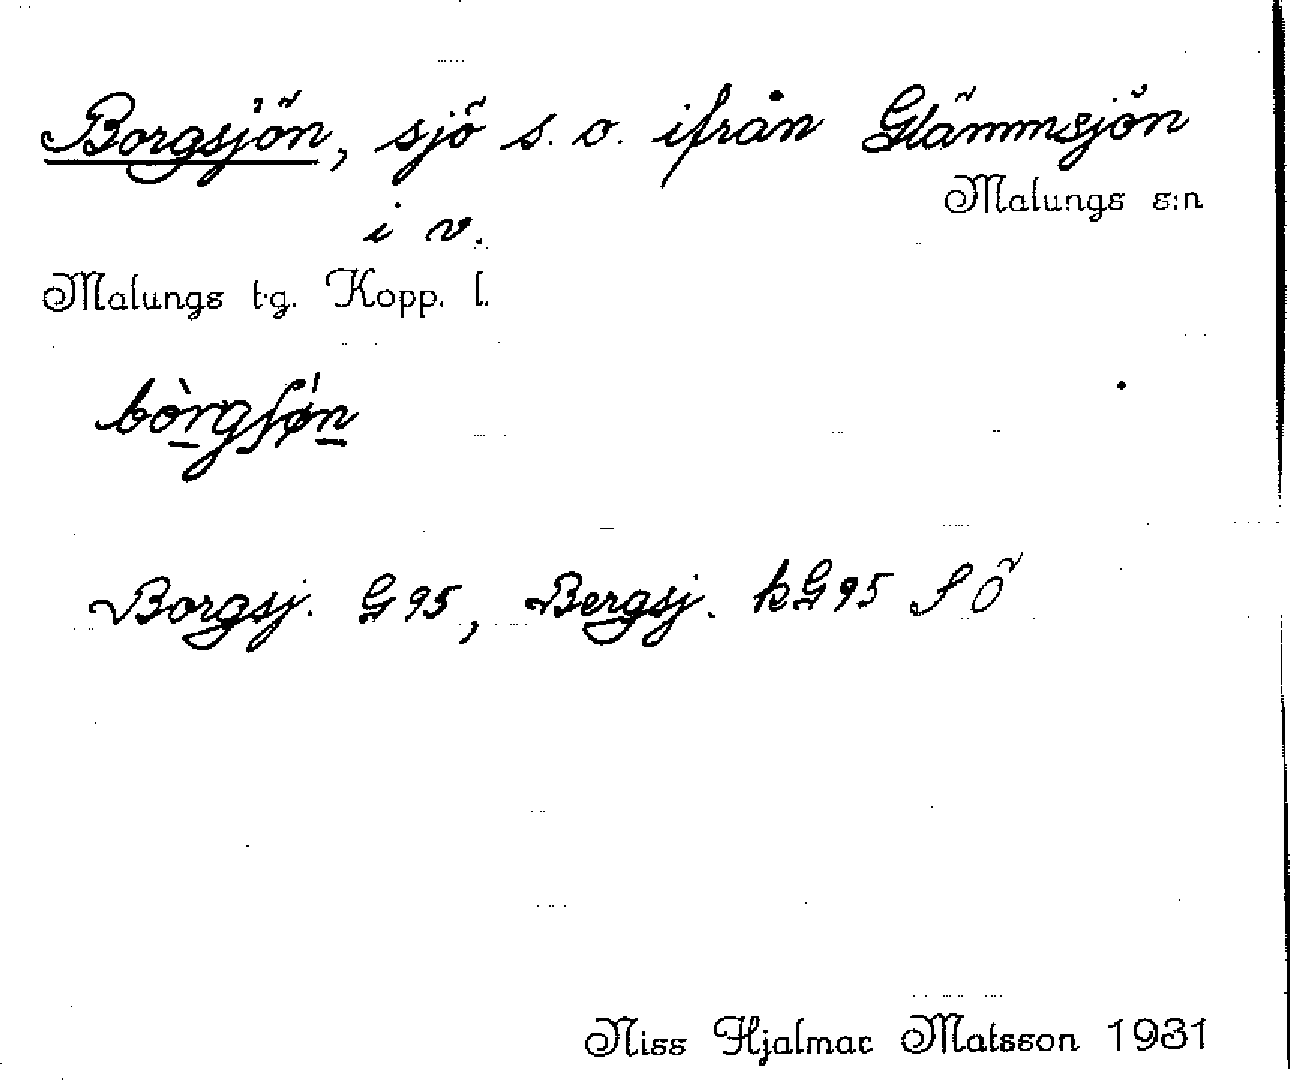 Borgsjön, sjö s. o. ifrån Glämmsjön
Malungs s:n
i v.
Malungs t.g. Kopp. l.
bòrgʃø̀n
Borgsj. G 95, Bergsj. kG 95 S Ö
Niss Hjalmar Matsson 1931